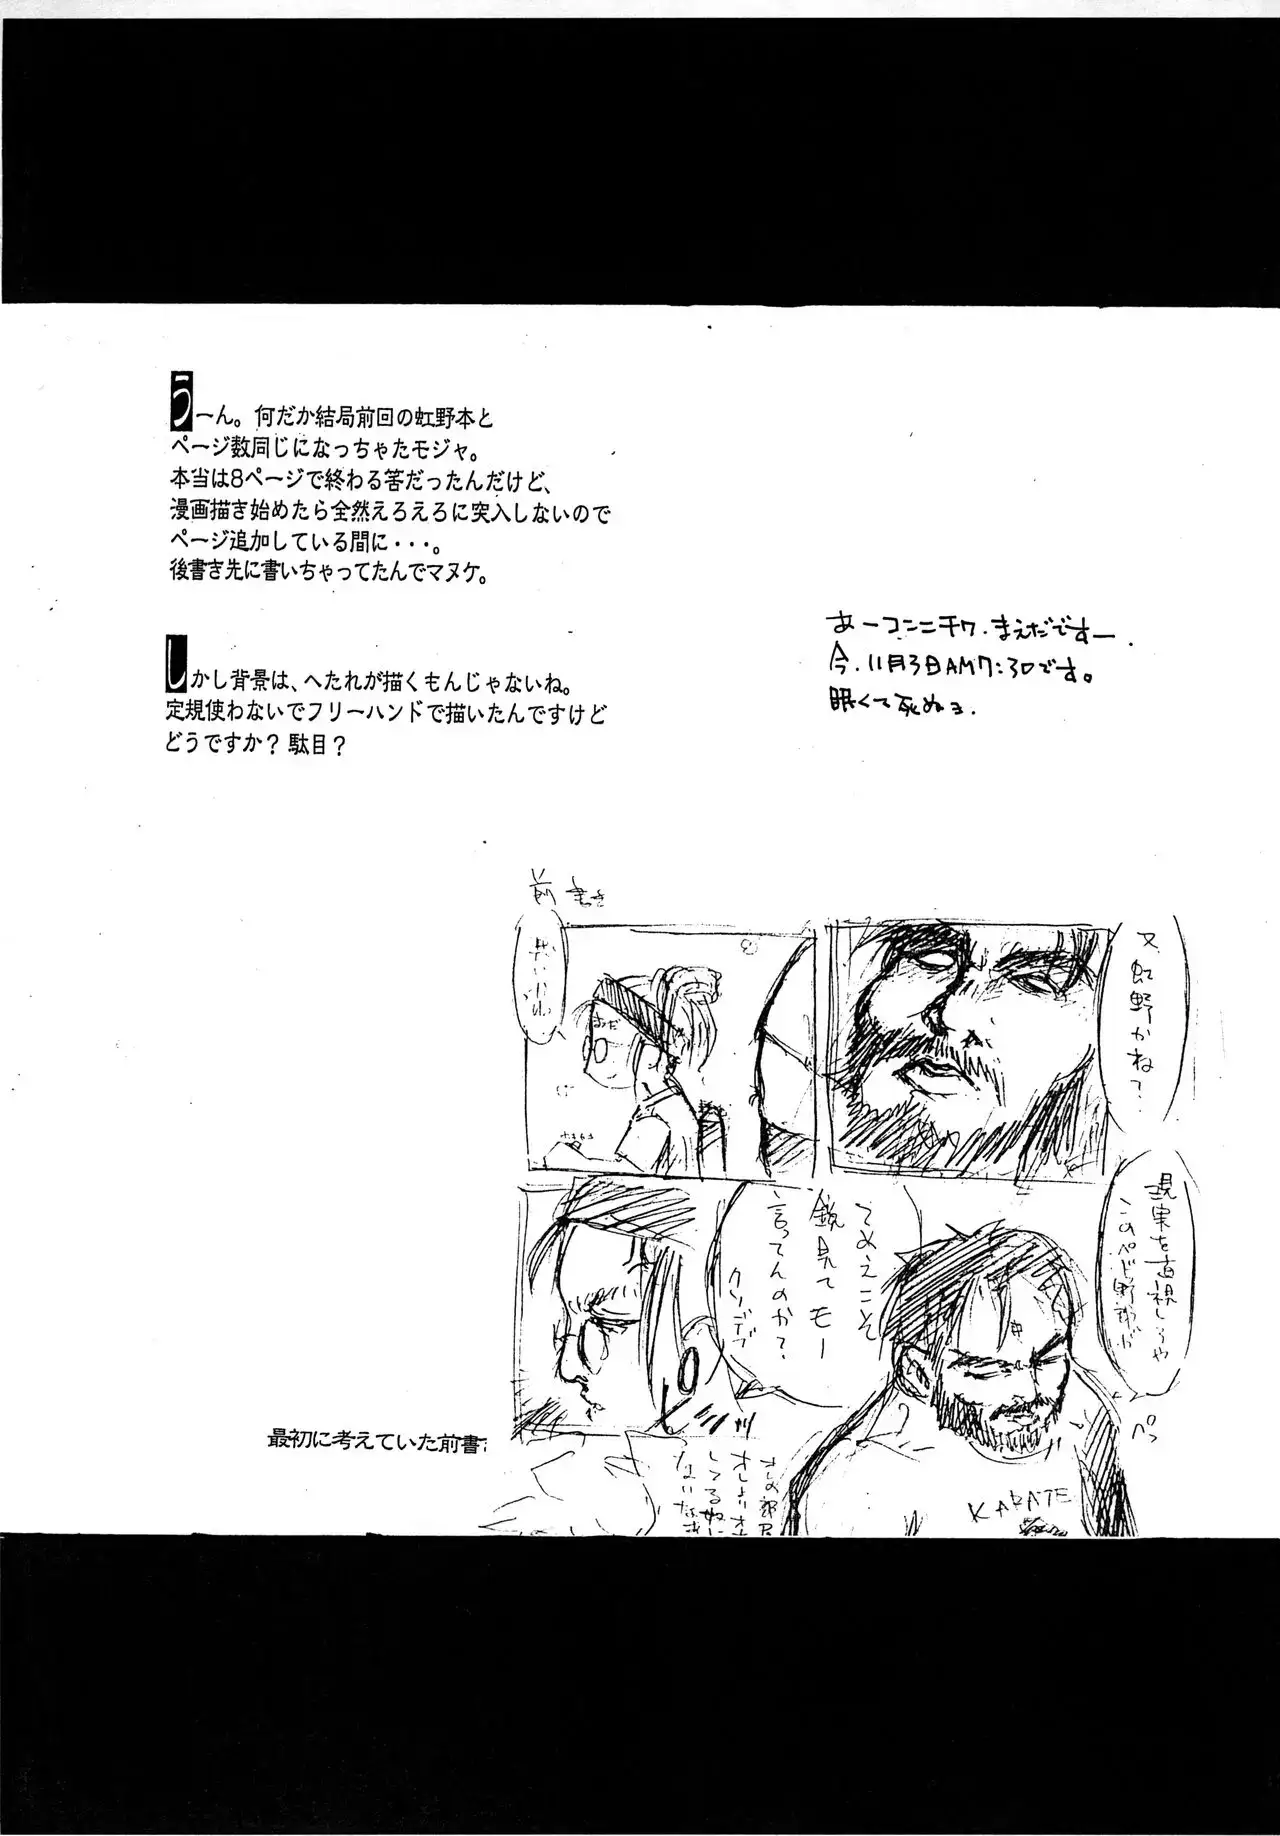 うーん。何だか結局前回の虹野本と
ページ数同じになっちゃたモジャ。
本当は8ページで終わる筈だったんだけど、
漫画描き始めたら全然えろえろに突入しないので
ページ追加している間に・・・。
後書き先に書いちゃってたんでマヌケ。
しかし背景は、へたれが描くもんじゃないね。
定規使わないでフリーハンドで描いたんですけど
どうですか？駄目？
あーコンニチワ.まえだですー.
今.11月3日AM7:30です。
眠くて死ぬよ.
前書き
又、虹野かね?
おだ
現実を直視しろや
このペド野郎が
ペッ
てめえこそ
鏡見てモー
言ってんのか?
クソデブ
KARATE
最初に考えていた前書